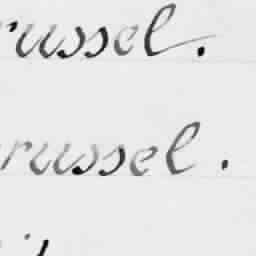 russel.
russel.